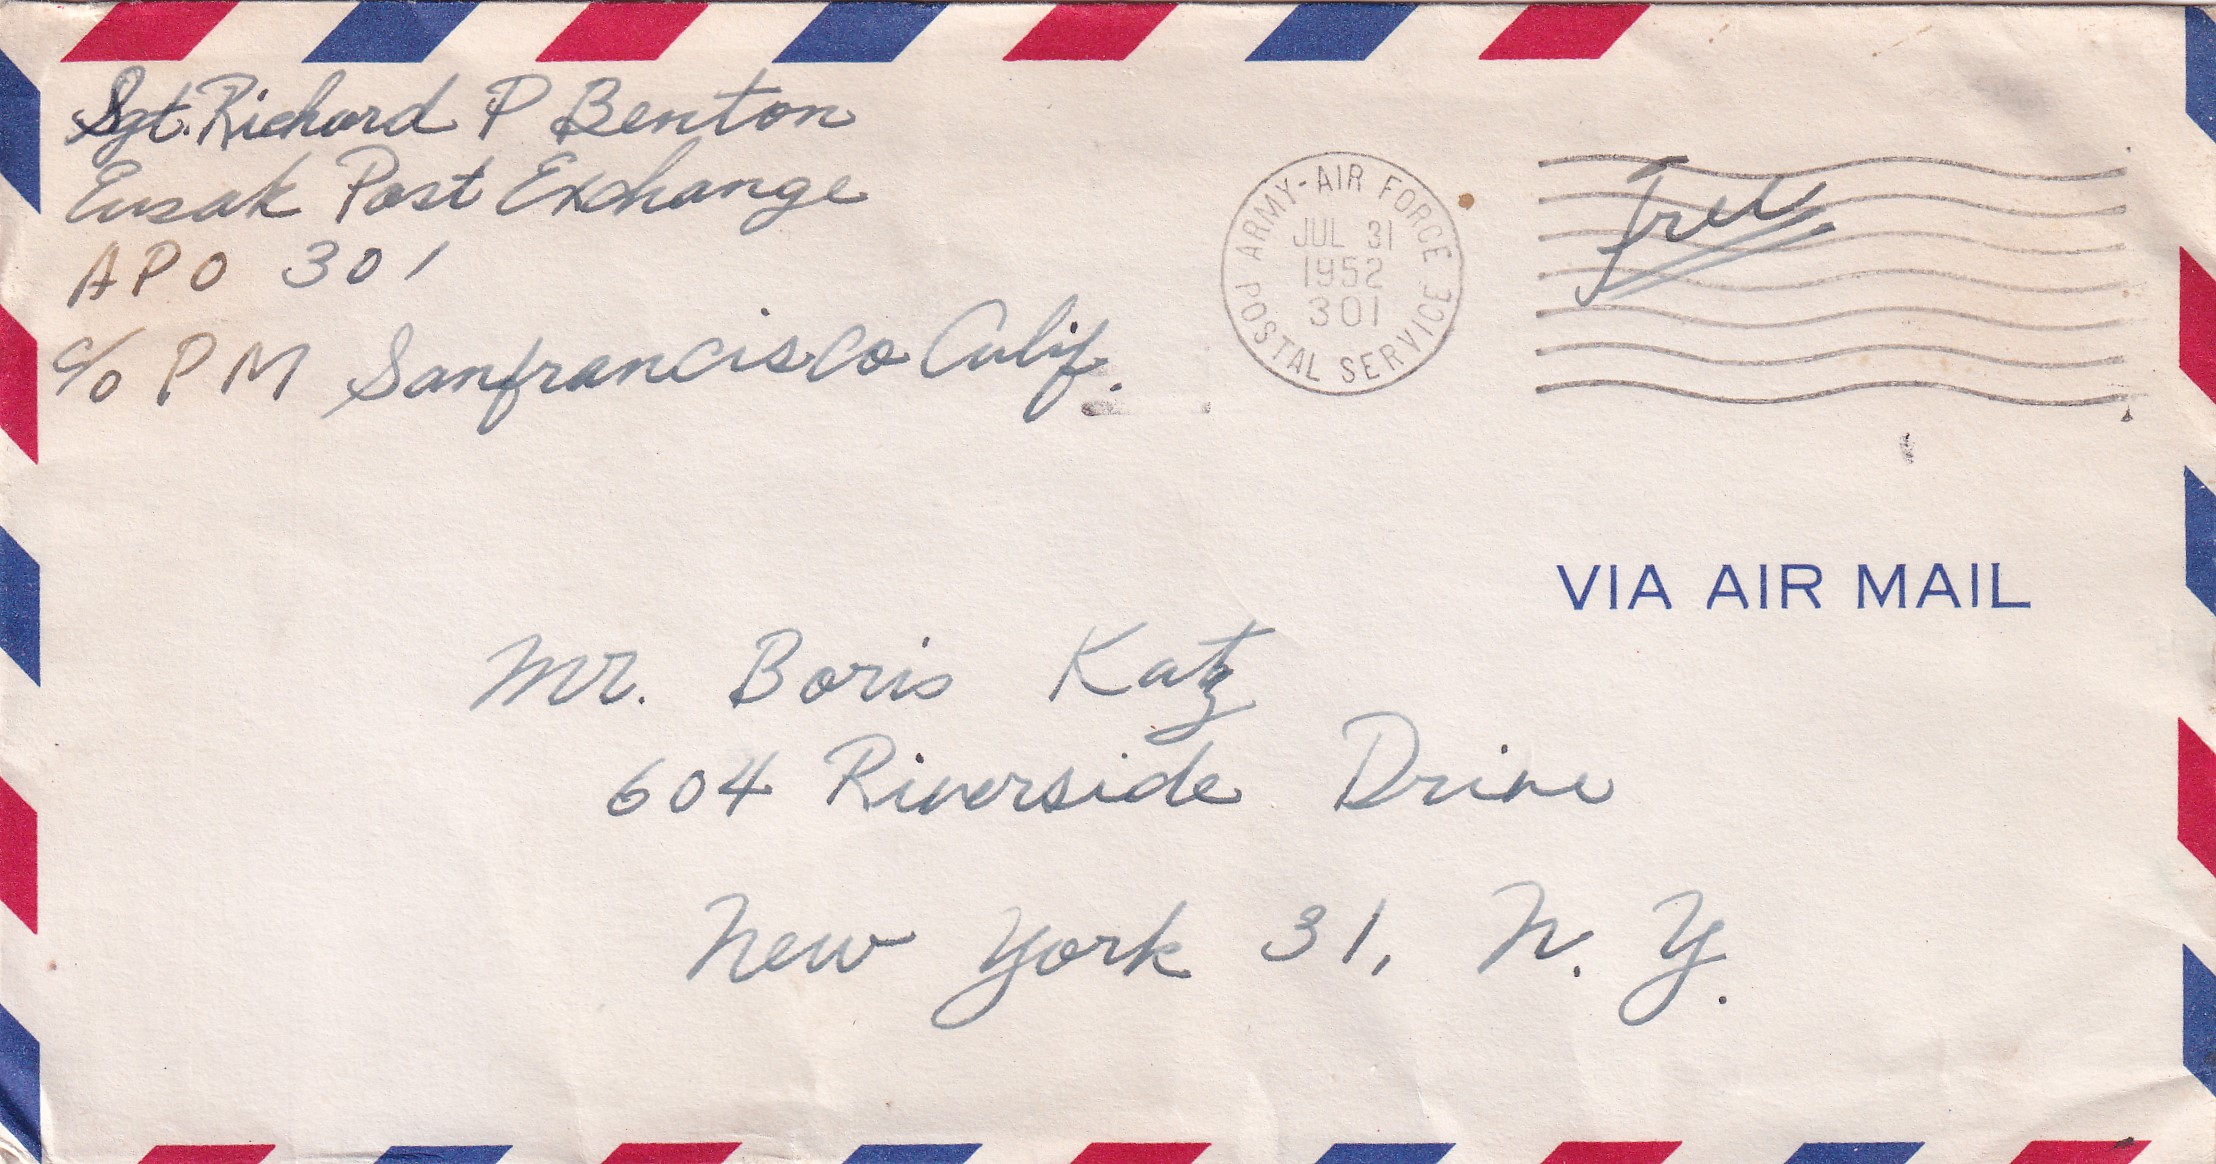 Sgt. Richard P Benton
Eusak Post Exchange
APO 301
c/o PM Sanfrancisco Calif.
ARMY-AIR FORCE
JUL 31
1952
301
POSTAL SERVICE
Free
VIA AIR MAIL
Mr. Boris Katz
604 Riverside Drive
New York 31, N. Y.